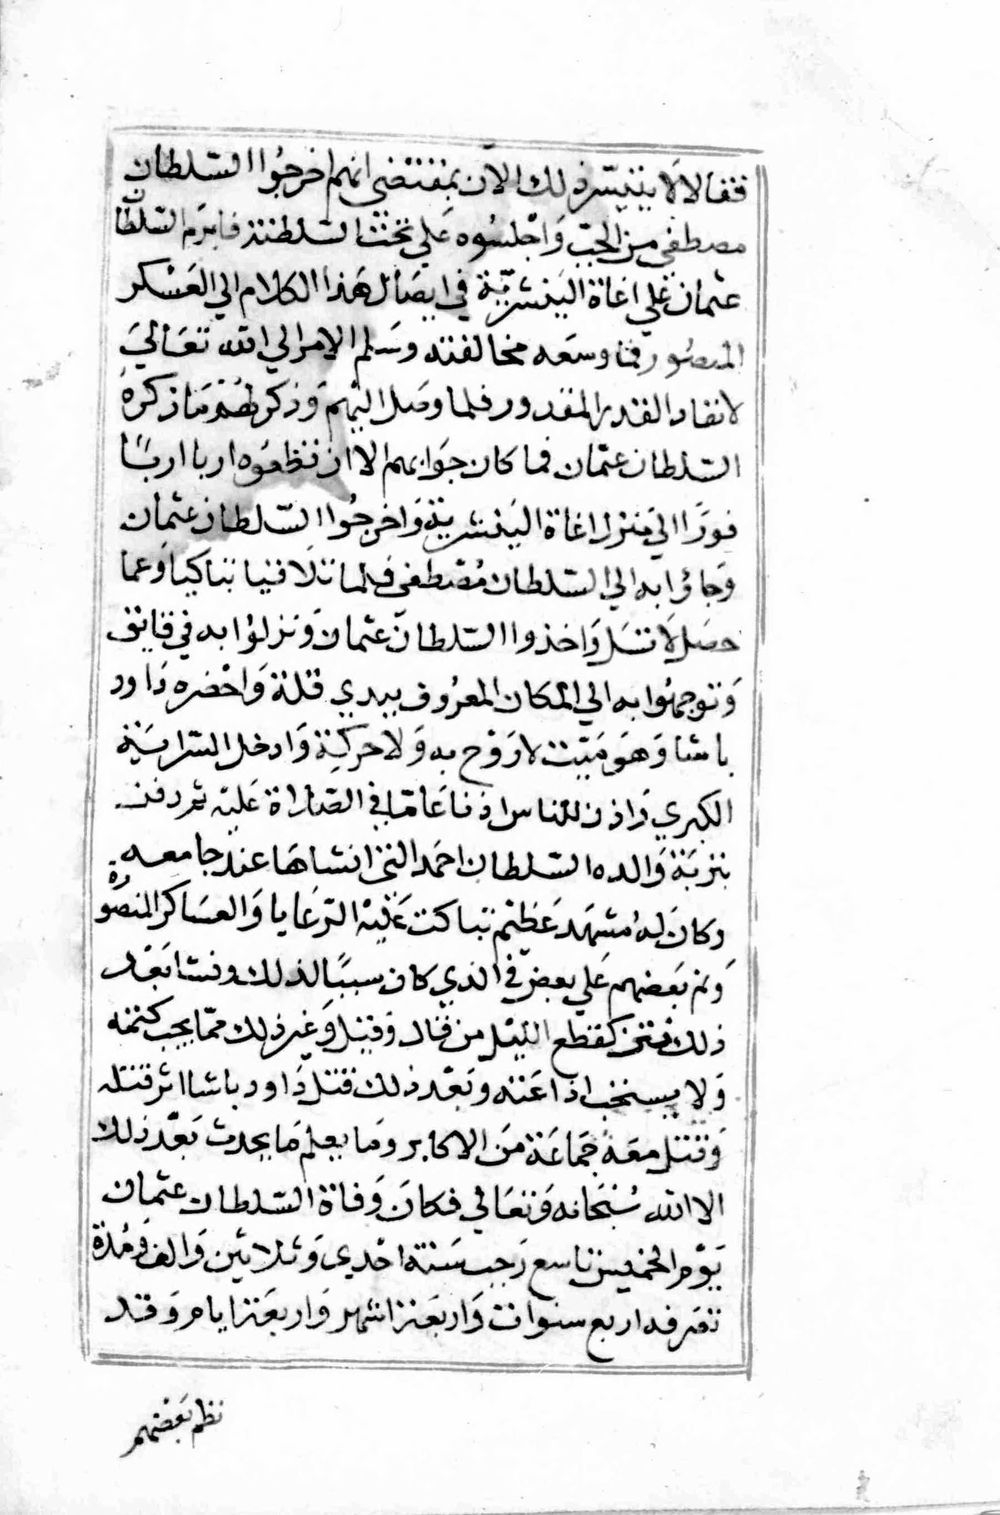 فقالا لا يتيسر ذلك الآن بمقتضى انهم اخرجوا السلطان
مصطفى من الجب وَاجْلسُوه عَلي تخت السلطنة فابرم السلطان
عثمان عَلي اغاة الينشريّة في ايصَال هَذا الكلام الي العَسْكر
المنصُور فما وسعَه مخالفته وسَلم الامر الي الله تعَالي
لانفاد القدر المقدور فلما وصَل اليْهم وَذكر لهُم مَا ذكره
السلطان عثمان فما كان جَوابهم الا ان قطعوه اربا اربًا
فورًا الي منزل اغاة الينشرية وَاخرجُوا السّلطان عثمان
وَجَاؤا به الي السلطان مُصْطفى فلما تلاقيا تباكيا وَعما
حصَل لا تسَل وَاخذوا السّلطان عثمان وَنزلوا به في قايق
وَتوجهُوا به الي المكان المعرُوف بيدي قلة وَاحْضره دَاود
باشا وَهوَ مَيّت لا رَوْح به وَلا حركة وَادخل السّرايَة
الكبري وَاذن للناس اذنا عَامّا في الصّلاة عَليْه ثم دفن
بتربَة وَالده السلطان احمَد التى انشاهَا عند جامعه
وَكانَ لهُ مَشْهَد عَظيْم تباكت عَليْه الرّعَايا وَالعسَاكر المنصُورة
وَنم بَعضهم عَلي بعضٍ في الذي كان سببًا لذلك ونشا بَعْد
ذلك فتن كقطع الليْل من قال وَقيْل وَغير ذلك ممّا يجب كتمه
وَلا يستحب اذاعَته وبَعْد ذلك قتل دَاود باشا اثر قتله
وَقتل معَهُ جَماعَة مَن الاكابر ومَا يعلم مَا يحدث بَعْد ذلك
الا الله سُبْحانه وَتعَالي فكانَ وَفاة السّلطان عثمان
يَوْم الخميس تاسع رَجب سَنة احْدي وَثلاثين وَالف وَمُدة
تصَرفه اربع سنوات وَاربعَة اشهر وَاربعَة ايام وَقد
نظم بَعْضهم